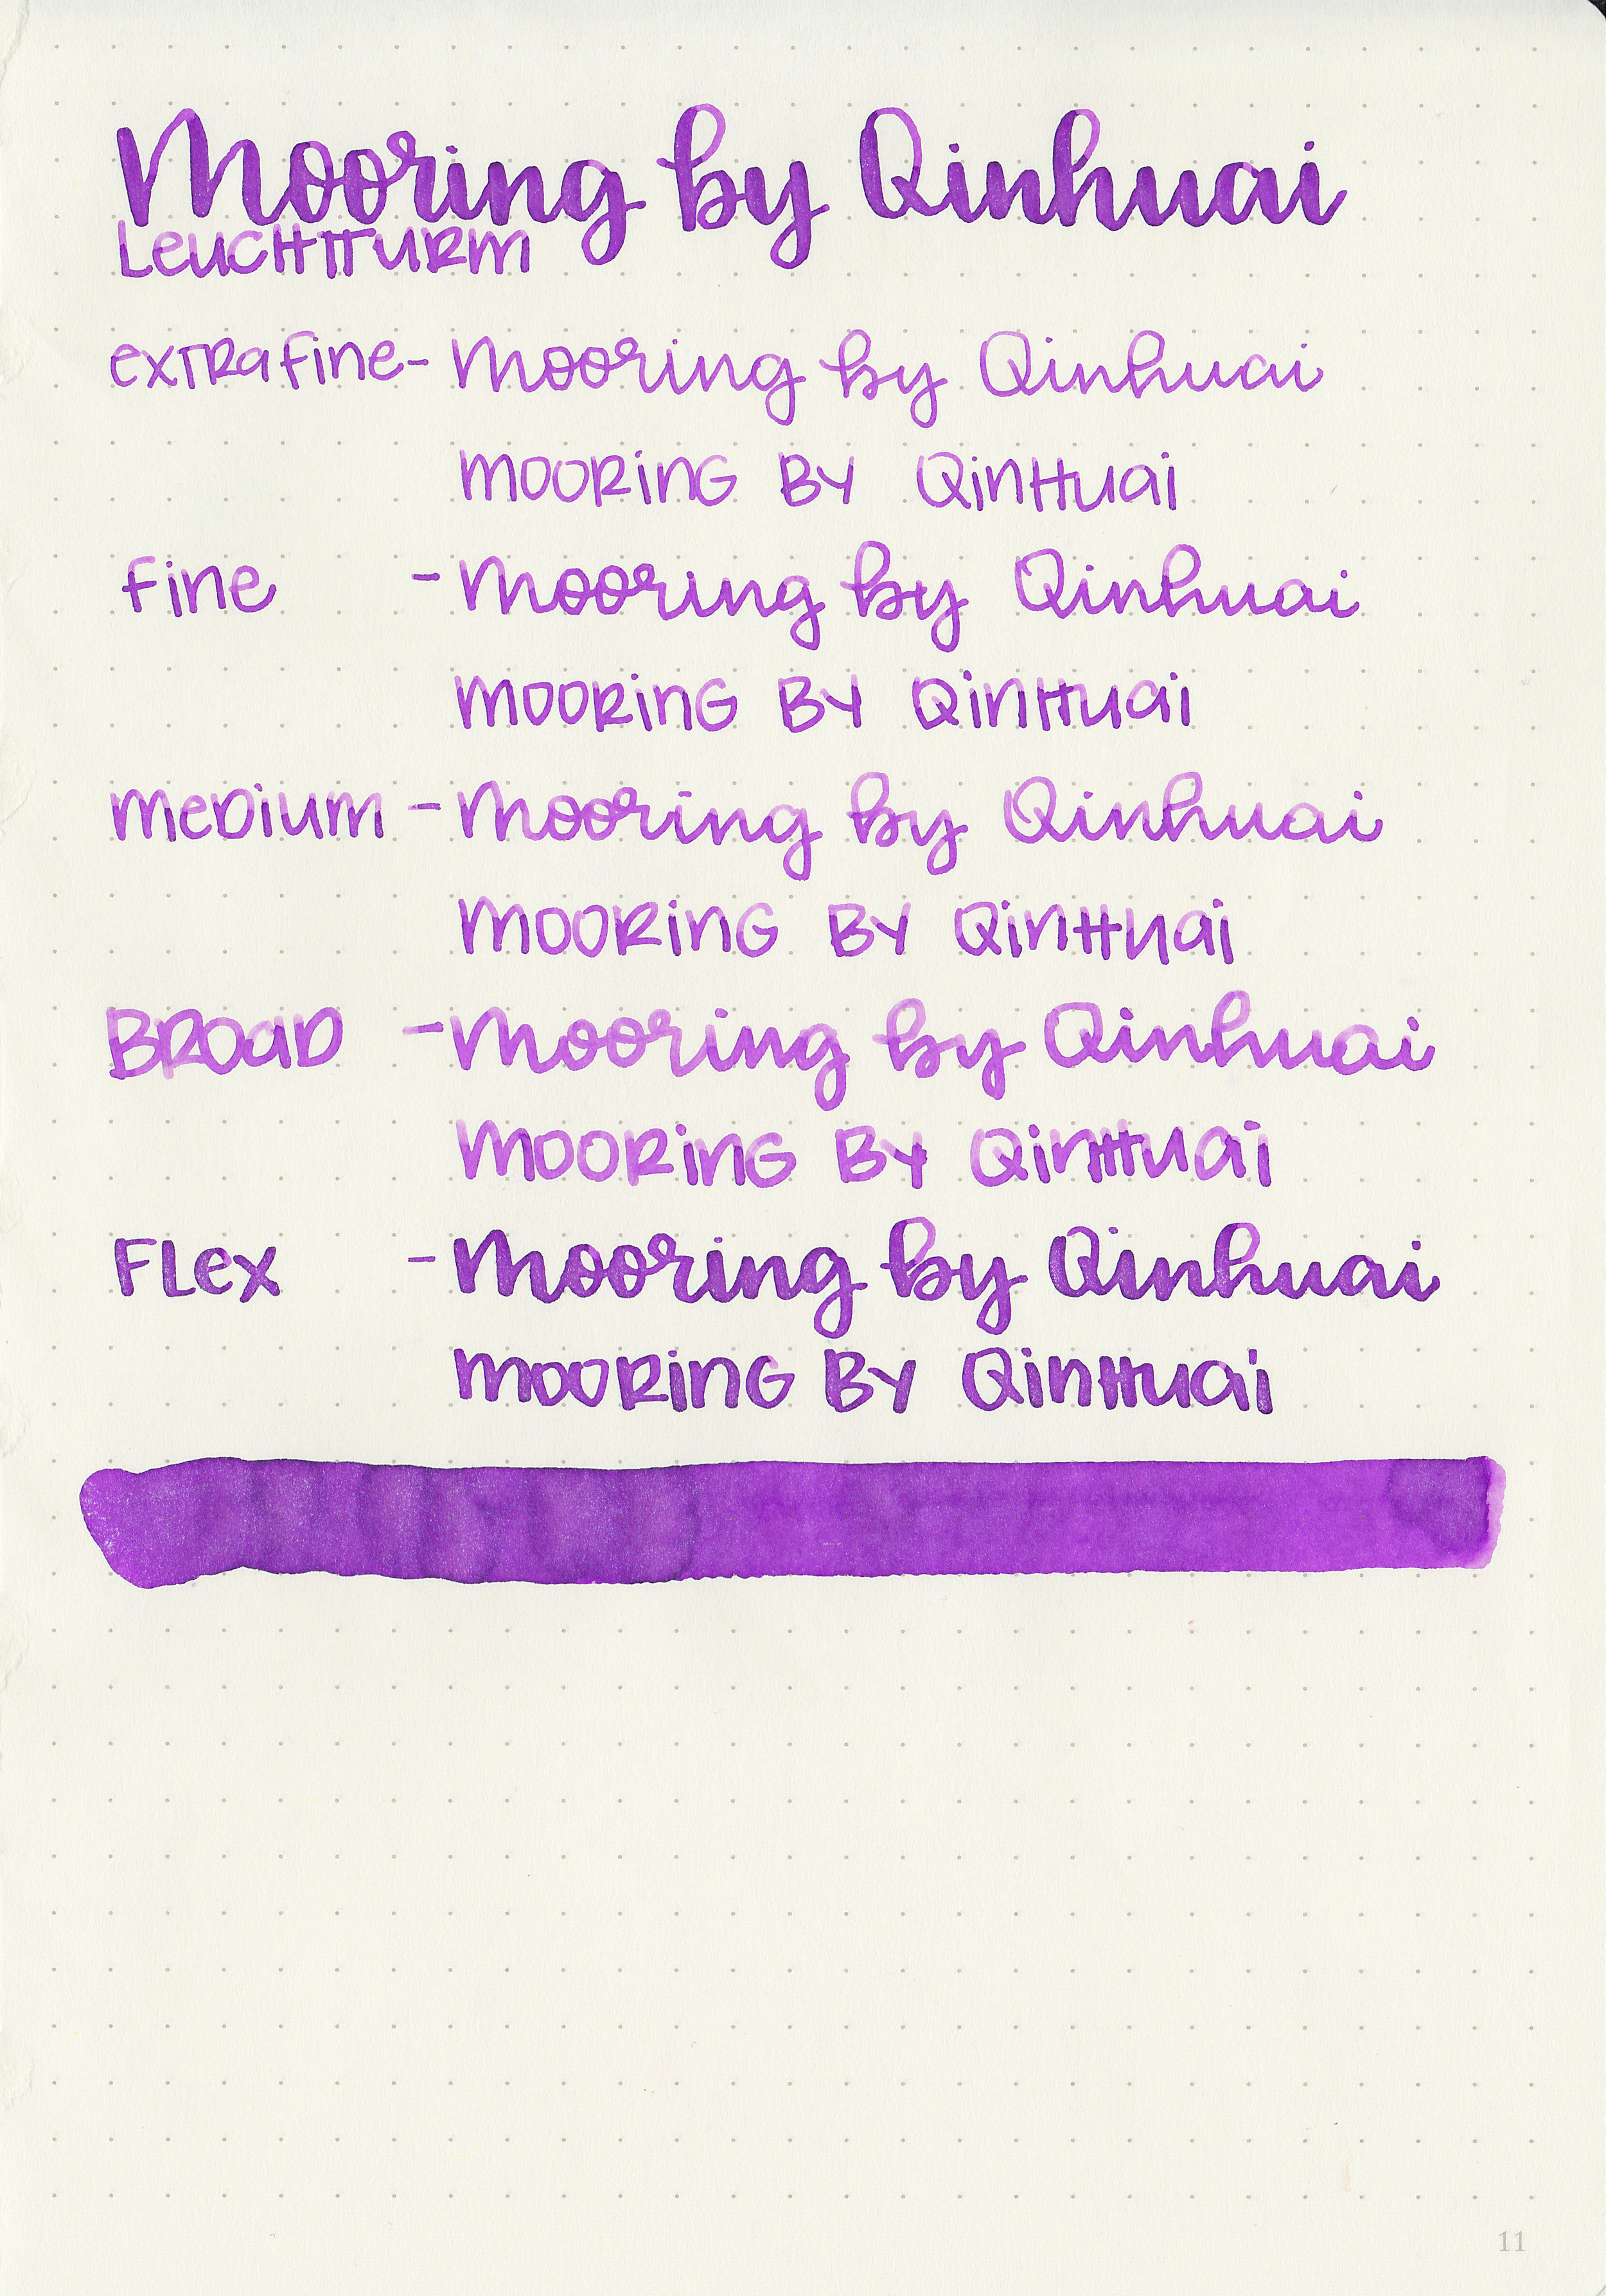 Mooring by Qinhuai
Leuchtturm
extra fine - Mooring by Qinhuai
Mooring By Qinhuai
Fine - Mooring by Qinhuai
Mooring By Qinhuai
Medium - Mooring by Qinhuai
Mooring By Qinhuai
Broad - Mooring by Qinhuai
Mooring By Qinhuai
Flex - Mooring by Qinhuai
Mooring By Qinhuai
11